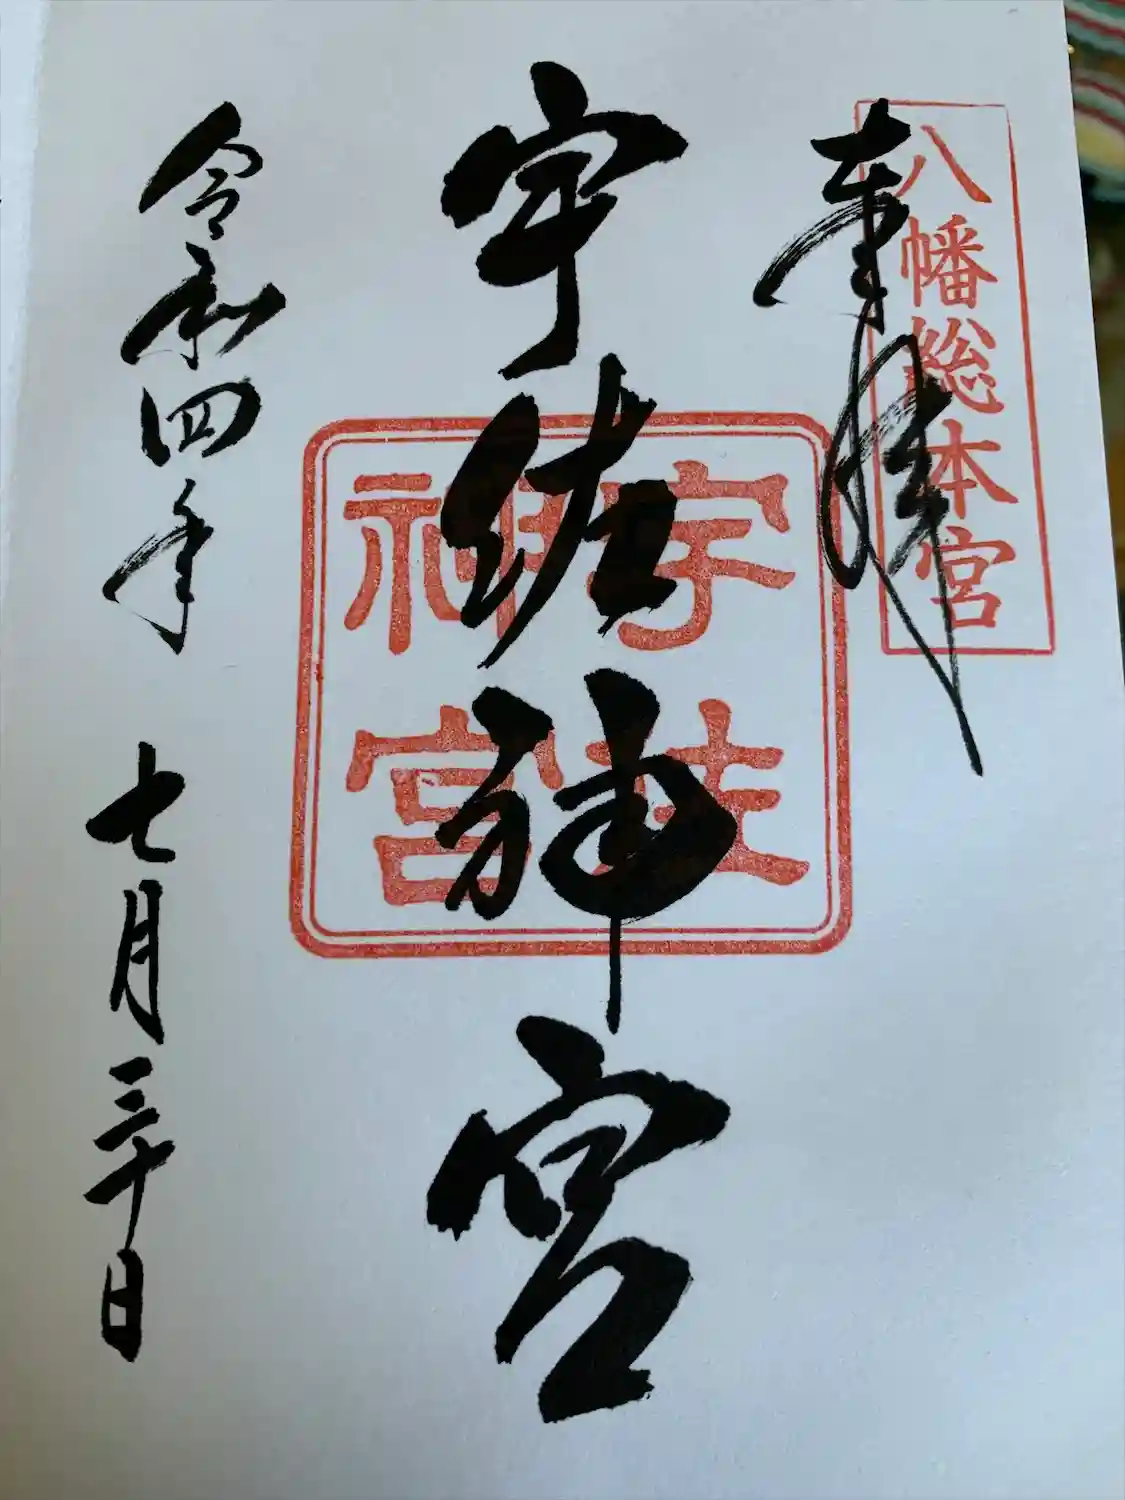 奉拝
八幡総本宮
宇佐神宮
宇佐神宮
令和四年七月三十日